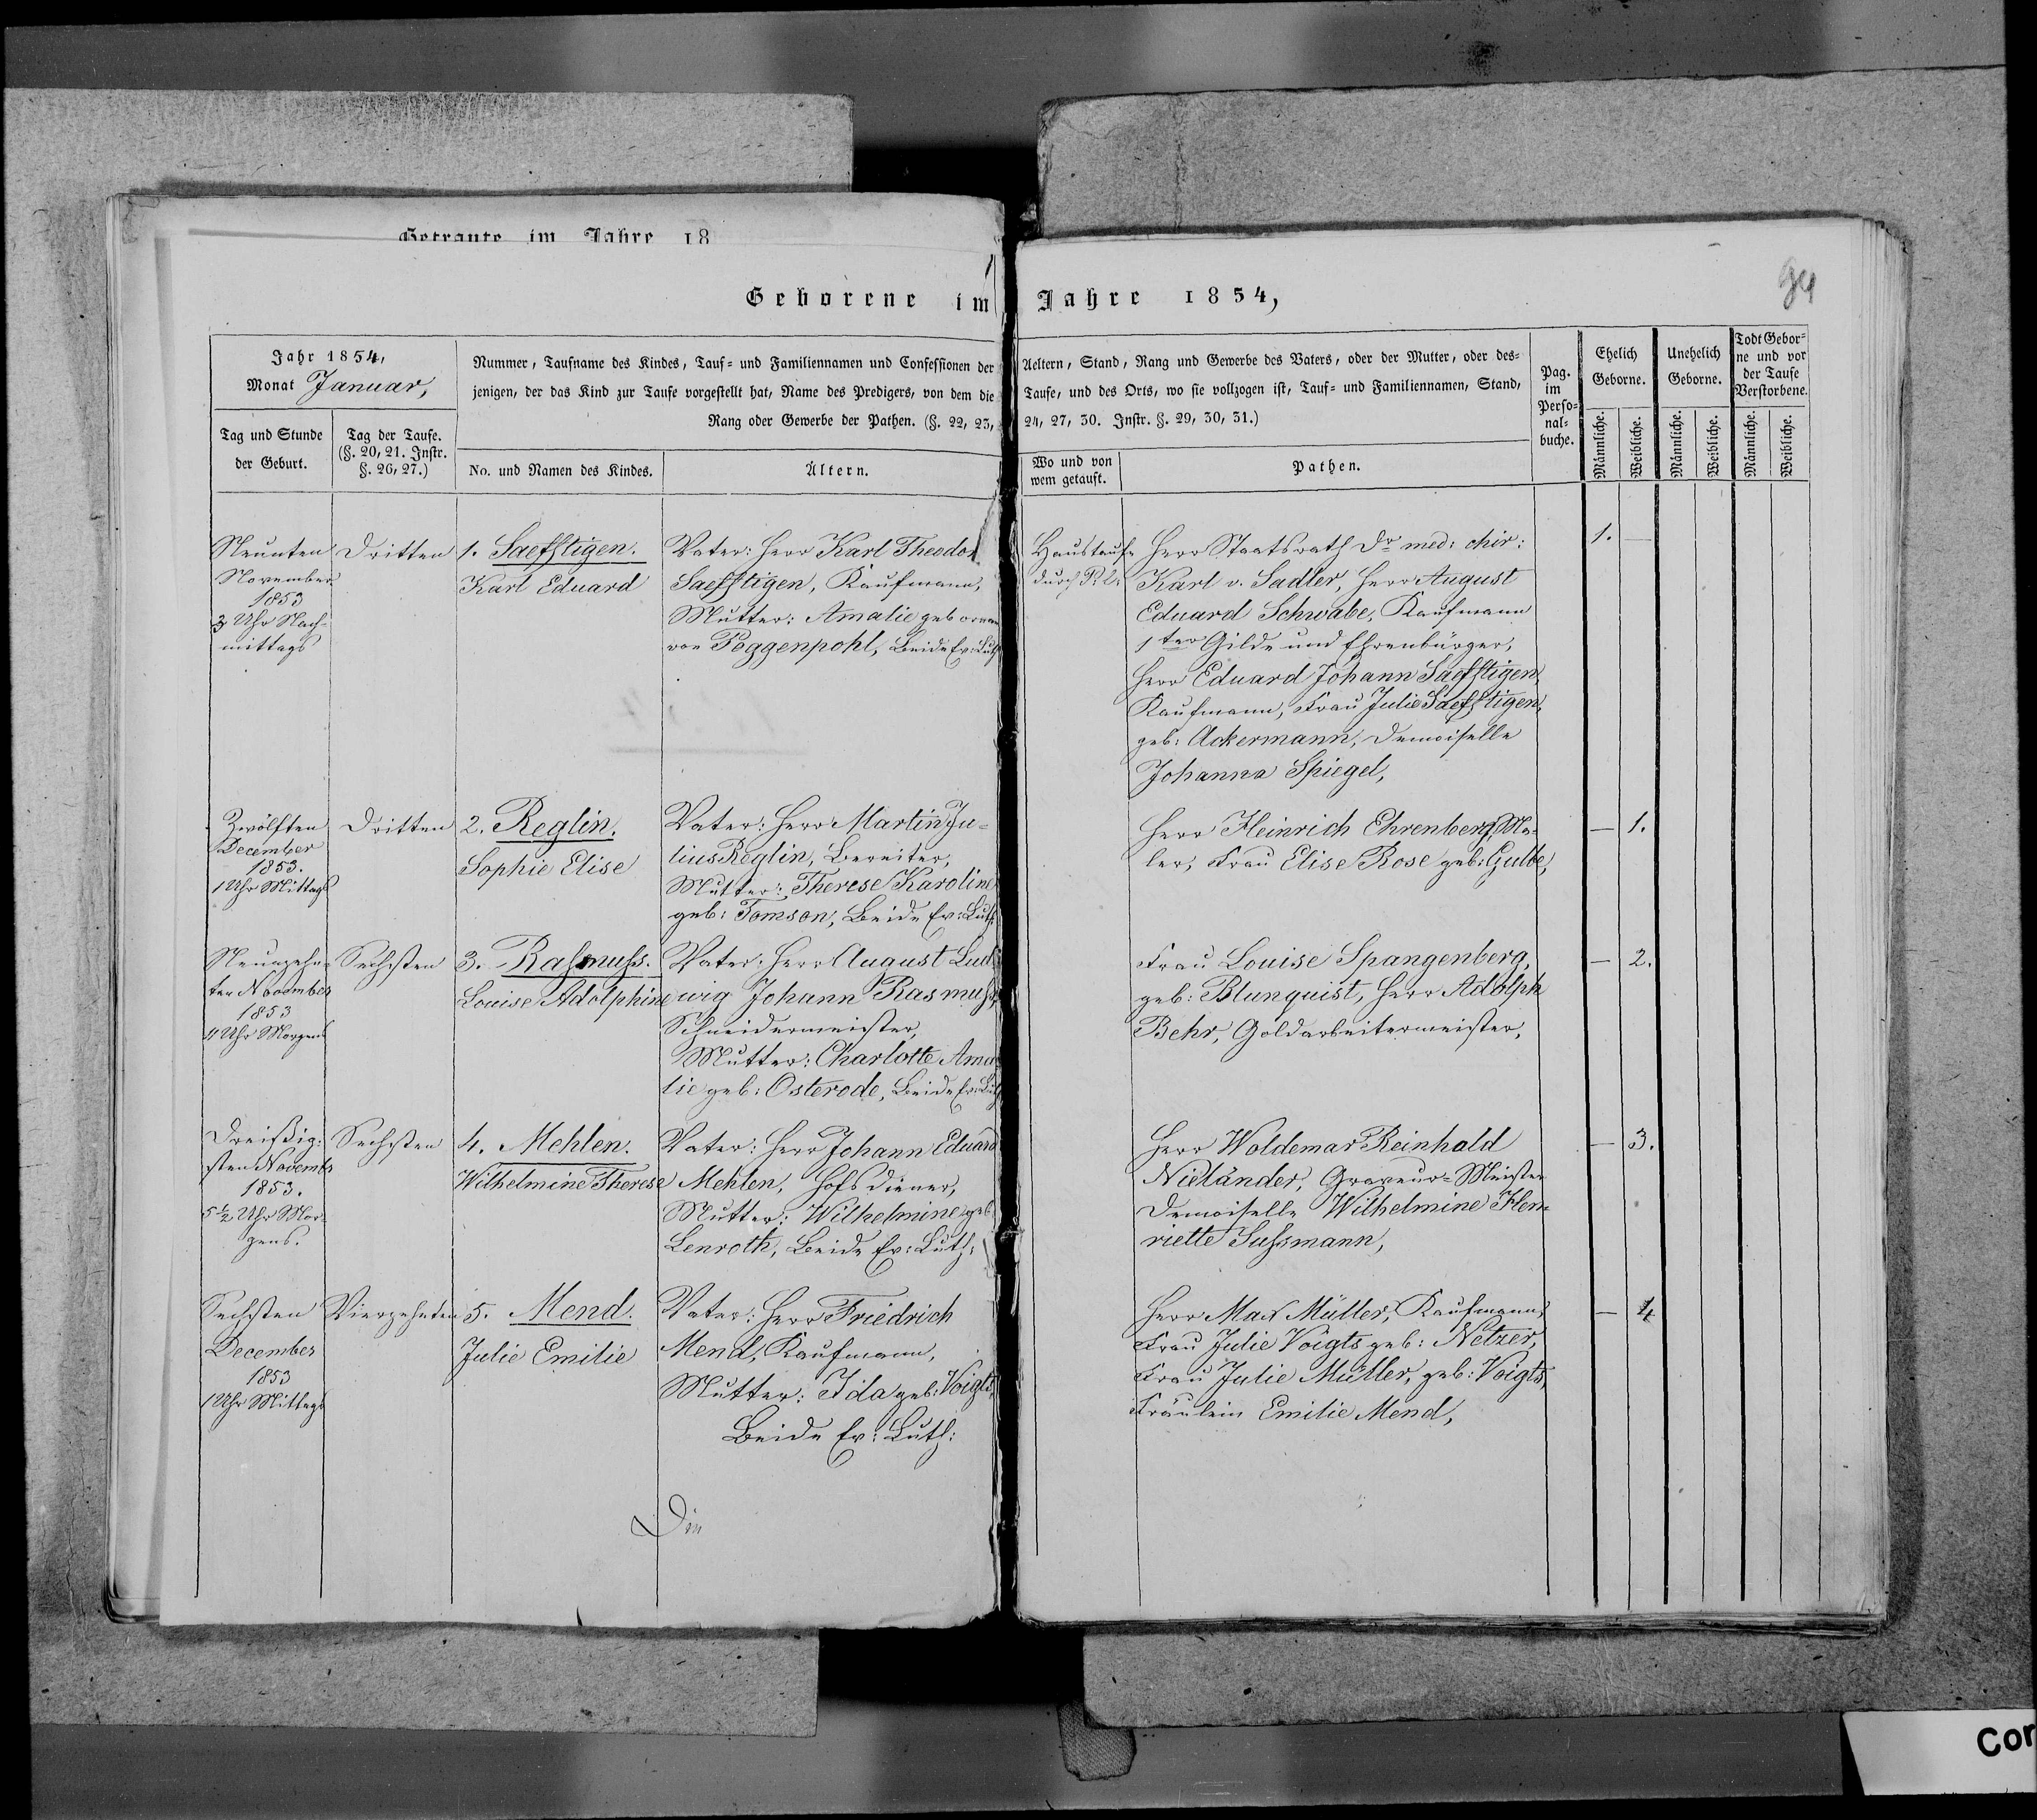 Getraute im Jahre 18
Geborene im Jahre 1854,
94
Jahr 1854,
Monat Januar,
Tag und Stunde
der Geburt.
Tag der Taufe.
(§. 20, 21. Instr.
§. 26, 27.)
Nummer, Taufname des Kindes, Tauf- und Familiennamen und Confessionen der
jenigen, der das Kind zur Taufe vorgestellt hat, Name des Predigers, von dem die
Rang oder Gewerbe der Pathen. (§. 22, 23,
No. und Namen des Kindes.
Ältern.
Aeltern, Stand, Rang und Gewerbe des Vaters, oder der Mutter, oder des-
Taufe, und des Orts, wo sie vollzogen ist, Tauf- und Familiennamen, Stand,
24, 27, 30. Instr. §. 29, 30, 31.)
Wo und von
wem getauft.
Pathen.
Pag.
im
Perso-
nal-
buche.
Ehelich
Geborne.
Unehelich
Geborne.
Todt Gebor-
ne und vor
der Taufe
Verstorbene.
Männliche.
Weibliche.
Männliche.
Weibliche.
Männliche.
Weibliche.
Neunten
November
1853
3 Uhr Nach-
mittags
Dritten
1. Saefftigen.
Karl Eduard
Vater: Herr Karl Theodor
Saefftigen, Kaufmann,
Mutter: Amalie geborene
von Poggenpohl, Beide Ev: Luth
Haustaufe
durch
Herr Staatsrath Dr med: chir:
Karl v. Sadler, Herr August
Eduard Schwabe, Kaufmann
1ter Gilde und Ehrenbürger,
Herr Eduard Johann Saefftigen
Kaufmann, Frau Julie Saefftigen,
geb: Ackermann, Demoiselle
Johanna Spiegel,
1. —
Zwölften
December
1853.
1 Uhr Mittags
Dritten
2. Reglin.
Sophie Elise
Vater: Herr Martin Ju-
lius Reglin, Bereiter,
Mutter: Therese Karoline
geb: Tomson, Beide Ev: Luth:
Herr Heinrich Ehrenberg, Ma-
ler, Frau Elise Rose geb: Gulbe,
— 1.
Neunzehn-
ten November
1853
4 Uhr Morgens
Sechsten
3. Rasmuss.
Louise Adolphine
Vater: Herr August Lud-
wig Johann Rasmuss,
Schneidermeister,
Mutter: Charlotte Ama-
lie geb: Osterode, Beide Ev: Luth
Frau Louise Spangenberg,
geb: Blunquist, Herr Adolph
Behr, Goldarbeitermeister,
— 2.
Dreißig-
sten Novembr
1853.
5 1/2 Uhr Mor-
gens.
Sechsten
4. Mehlen.
Wilhelmine Therese
Vater: Herr Johann Eduard
Mehlen, Hofsdiener,
Mutter: Wilhelmine geb
Lenroth, Beide Ev: Luth:
Herr Woldemar Reinhold
Nieländer, Graveur-Meister
Demoiselle Wilhelmine Hen-
riette Sussmann,
— 3.
Sechsten
December
1853
1 Uhr Mittags
Vierzehnten
5. Mend.
Julie Emilie
Vater: Herr Friedrich
Mend, Kaufmann,
Mutter: Ida geb: Voigts,
Beide Ev: Luth:
Herr Max Müller, Kaufmann,
Frau Julie Voigts geb: Netzer,
Frau Julie Müller, geb: Voigts,
Fräulein Emilie Mend,
— 4
Die
Cor